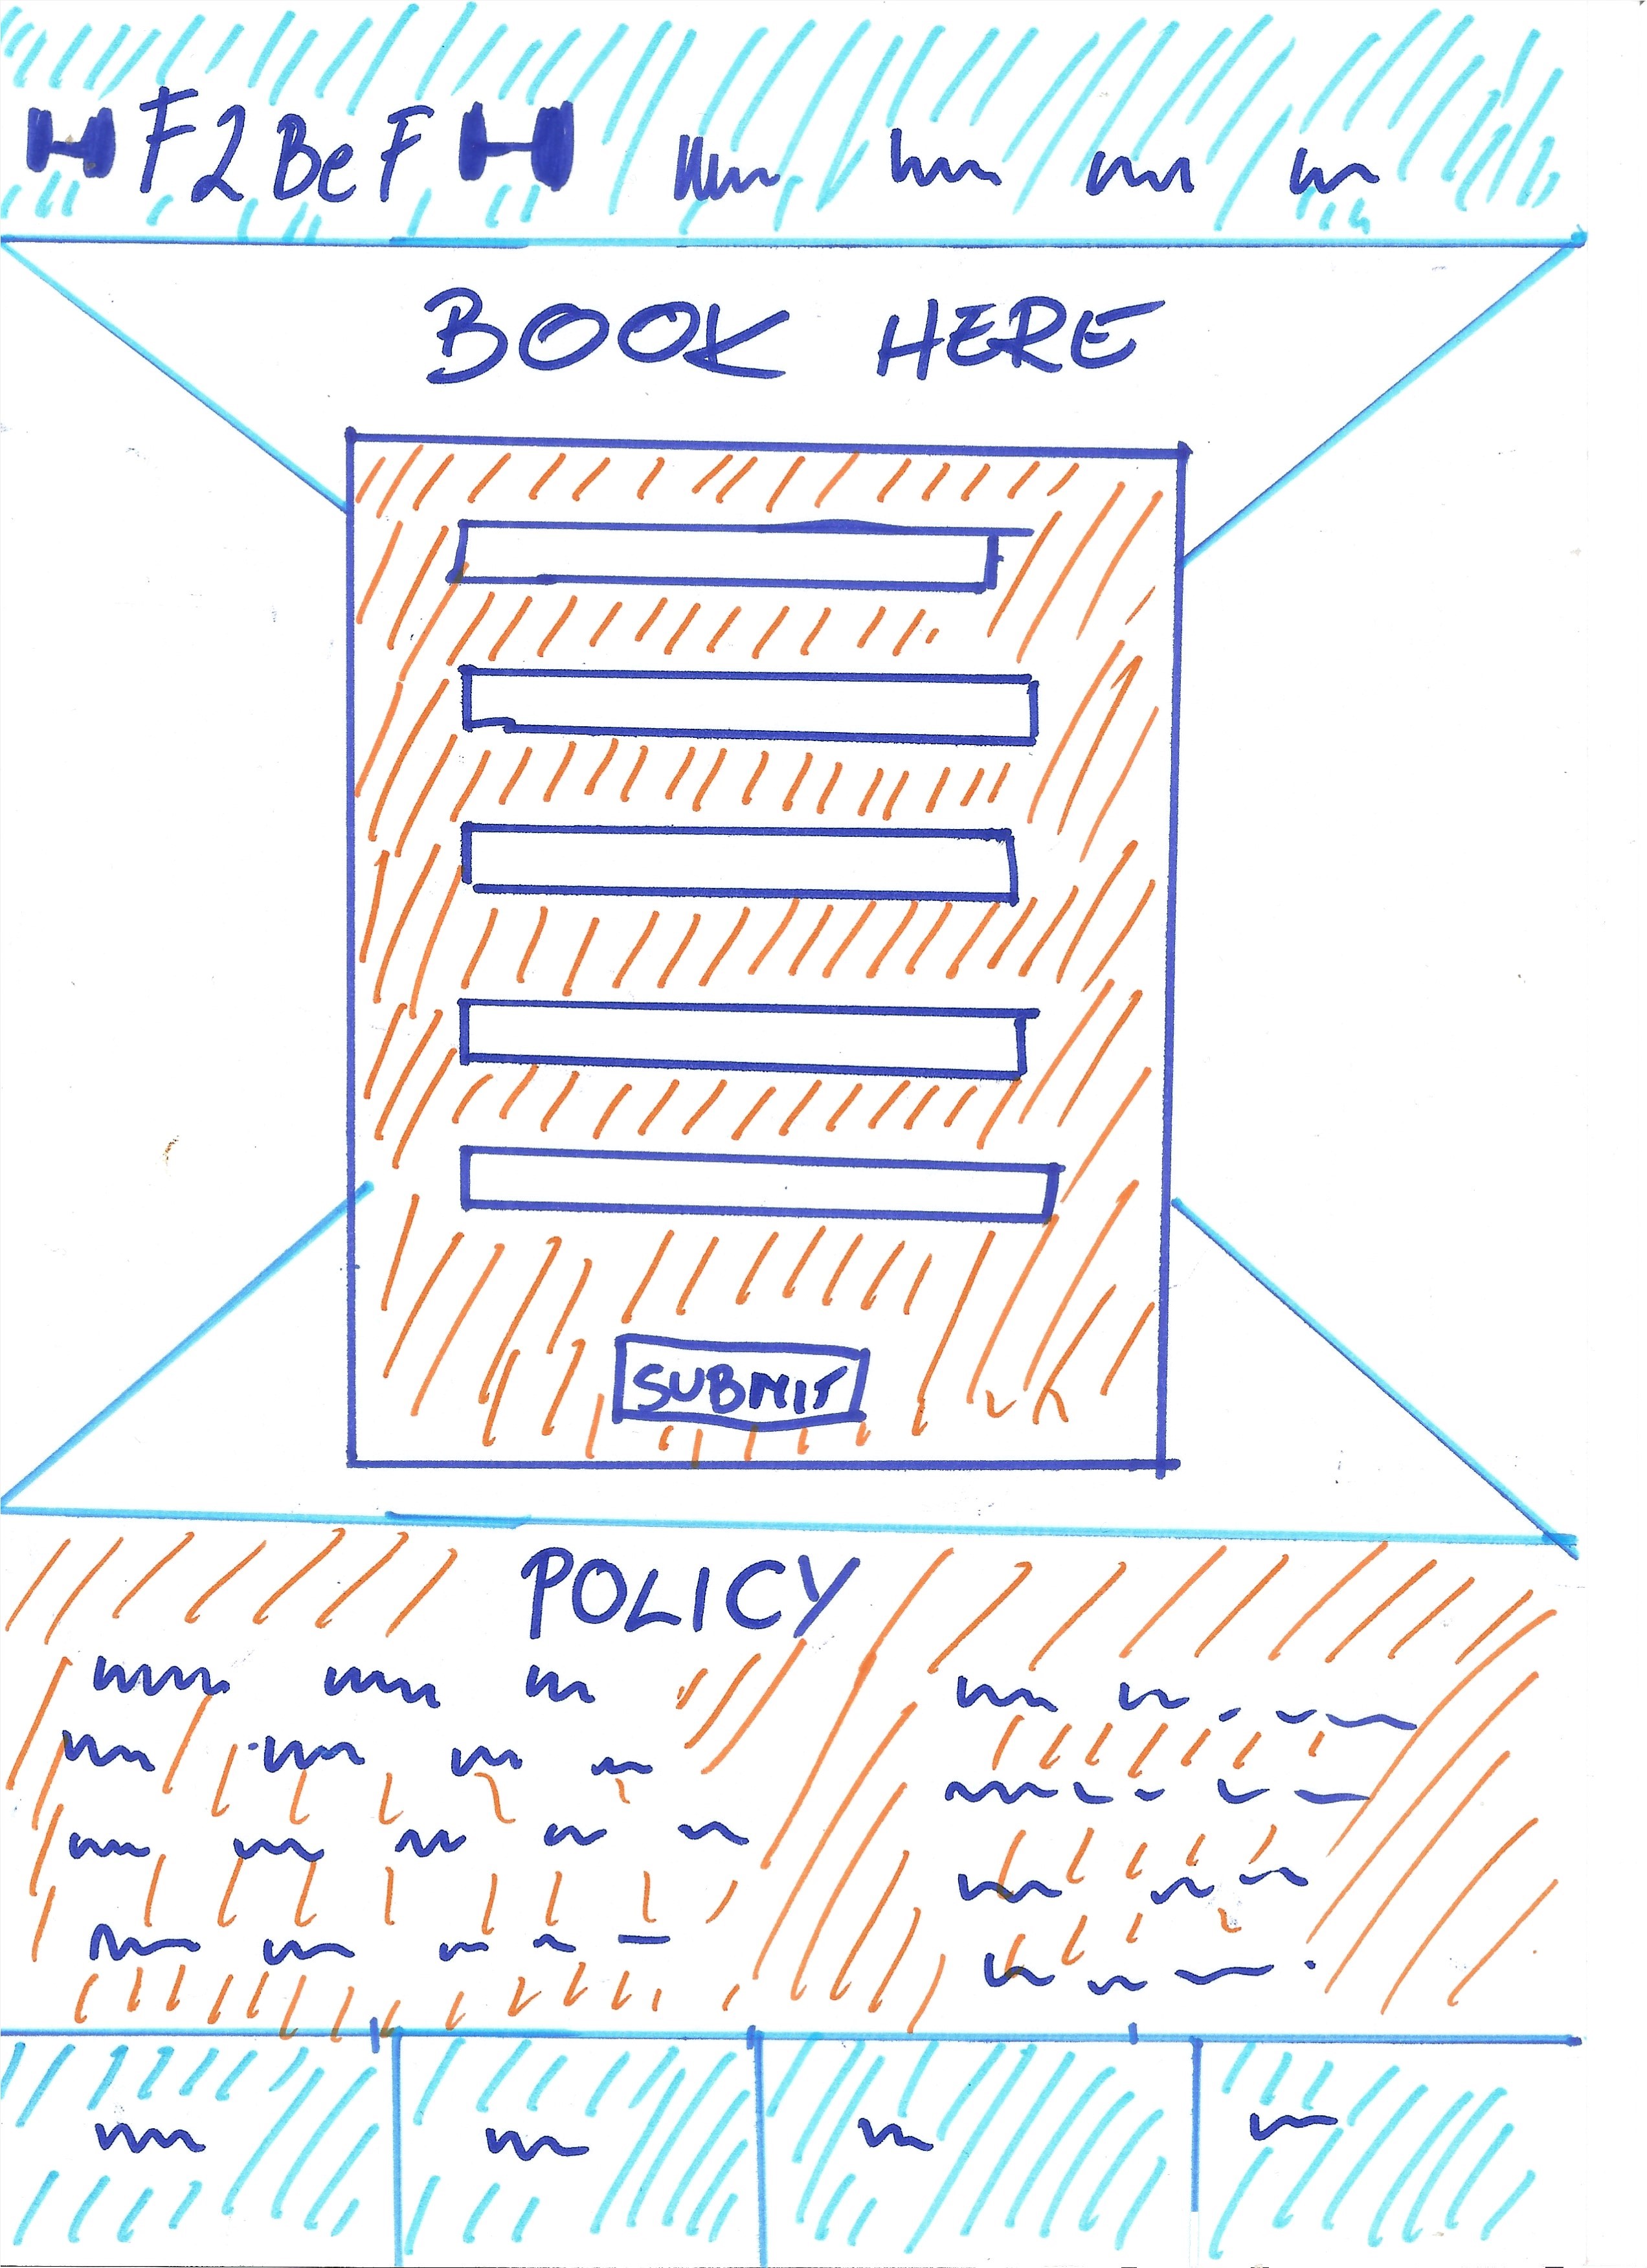 F2BeF
BOOK HERE
SUBMIT
POLICY